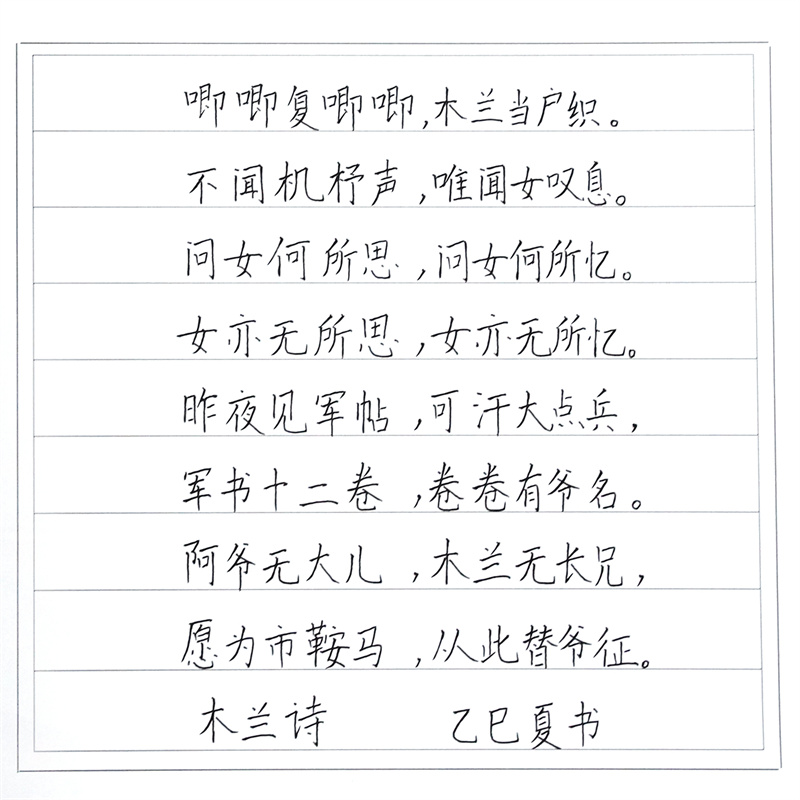 唧唧复唧唧,木兰当户织。
不闻机杼声,唯闻女叹息。
问女何所思,问女何所忆。
女亦无所思,女亦无所忆。
昨夜见军帖,可汗大点兵,
军书十二卷,卷卷有爷名。
阿爷无大儿,木兰无长兄,
愿为市鞍马,从此替爷征。
木兰诗 乙巳夏书